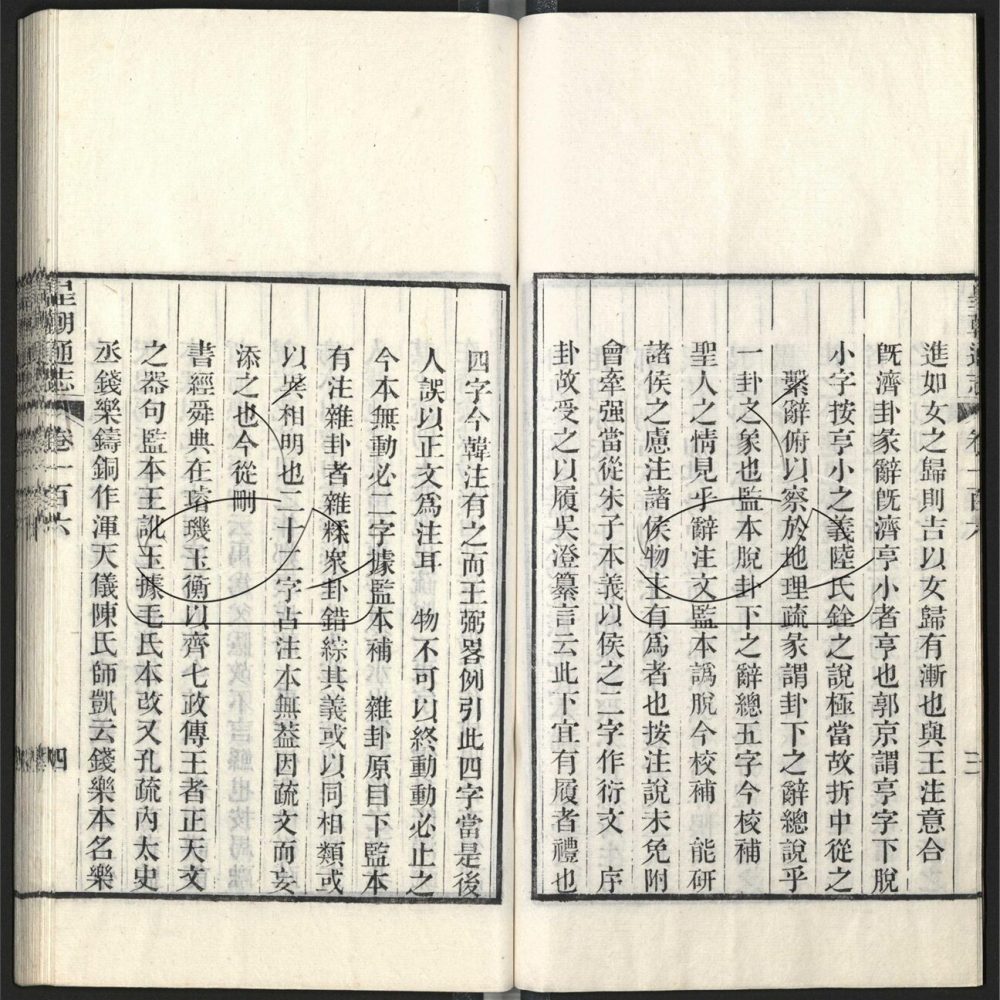 進如女之歸則吉以女歸有漸也與王注意合
旣濟卦彖辭旣濟亨小者亨也郭京謂亨字下脫
小字按亨小之義陸氏銓之說極當故折中從之
繫辭俯以察於地理疏彖謂卦下之辭總說乎
一卦之象也監本脫卦下之辭總五字今校補
聖人之情見乎辭注文監本譌脫今校補　能研
諸侯之慮注諸侯物主有爲者也按注說未免附
會牽强當從朱子本義以侯之二字作衍文　序
卦故受之以履吳澄纂言云此下宜有履者禮也
四字今韓注有之而王弼畧例引此四字當是後
人誤以正文爲注耳　物不可以終動動必止之
今本無動必二字據監本補　雜卦原目下監本
有注雜卦者雜糅衆卦錯綜其義或以同相類或
以異相明也二十二字古注本無葢因疏文而妄
添之也今從刪
書經舜典在璿璣玉衡以齊七政傳王者正天文
之器句監本王訛玉據毛氏本改又孔疏內太史
丞錢樂鑄銅作渾天儀陳氏師凱云錢樂本名樂
皇朝通志
卷一百六
四